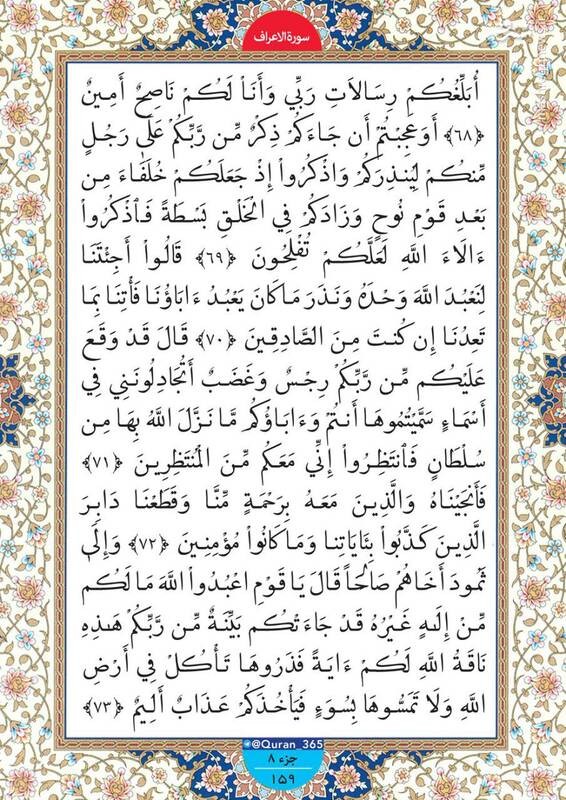 سورة الاعراف
أُبَلِّغُكُمْ رِسَالَاتِ رَبِّي وَأَنَاْ لَكُمْ نَاصِحٌ أَمِينٌ
﴿٦٨﴾ أَوَعَجِبْتُمْ أَن جَاءَكُمْ ذِكْرٌ مِّن رَّبِّكُمْ عَلَى رَجُلٍ
مِّنكُمْ لِيُنذِرَكُمْ وَاذْكُرُواْ إِذْ جَعَلَكُمْ خُلَفَاءَ مِن
بَعْدِ قَوْمِ نُوحٍ وَزَادَكُمْ فِي الْخَلْقِ بَسْطَةً فَاذْكُرُواْ
ءَالَاءَ اللَّهِ لَعَلَّكُمْ تُفْلِحُونَ ﴿٦٩﴾ قَالُواْ أَجِئْتَنَا
لِنَعْبُدَ اللَّهَ وَحْدَهُ وَنَذَرَ مَا كَانَ يَعْبُدُ ءَابَاؤُنَا فَأْتِنَا بِمَا
تَعِدُنَا إِن كُنتَ مِنَ الصَّادِقِينَ ﴿٧٠﴾ قَالَ قَدْ وَقَعَ
عَلَيْكُم مِّن رَّبِّكُمْ رِجْسٌ وَغَضَبٌ أَتُجَادِلُونَنِي فِي
أَسْمَاءٍ سَمَّيْتُمُوهَا أَنتُمْ وَءَابَاؤُكُم مَّا نَزَّلَ اللَّهُ بِهَا مِن
سُلْطَانٍ فَانتَظِرُواْ إِنِّي مَعَكُم مِّنَ الْمُنتَظِرِينَ ﴿٧١﴾
فَأَنجَيْنَاهُ وَالَّذِينَ مَعَهُ بِرَحْمَةٍ مِّنَّا وَقَطَعْنَا دَابِرَ
الَّذِينَ كَذَّبُواْ بِئَايَاتِنَا وَمَا كَانُواْ مُؤْمِنِينَ ﴿٧٢﴾ وَإِلَى
ثَمُودَ أَخَاهُمْ صَالِحًا قَالَ يَا قَوْمِ اعْبُدُواْ اللَّهَ مَا لَكُم
مِّنْ إِلَهٍ غَيْرُهُ قَدْ جَاءَتْكُم بَيِّنَةٌ مِّن رَّبِّكُمْ هَذِهِ
نَاقَةُ اللَّهِ لَكُمْ ءَايَةً فَذَرُوهَا تَأْكُلْ فِي أَرْضِ
اللَّهِ وَلَا تَمَسُّوهَا بِسُوءٍ فَيَأْخُذَكُمْ عَذَابٌ أَلِيمٌ ﴿٧٣﴾
@Quran_365
جزء ٨
١٥٩